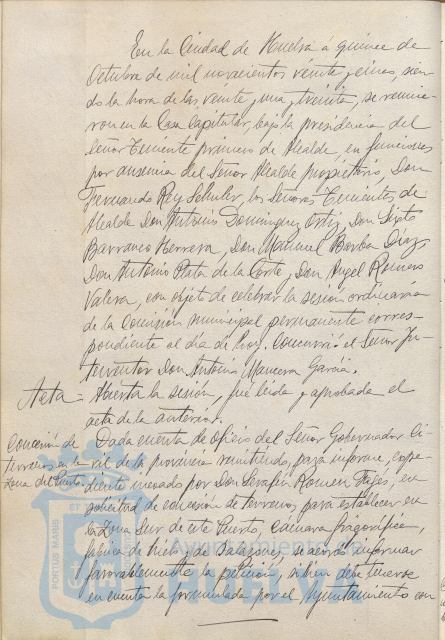 En la Ciudad de Huelva á quince de
Octubre de mil novecientos veinte y cinco, sien-
do la hora de las veinte, una y treinta, se reunie-
ron en la Casa Capitular, bajo la presidencia del
Señor Teniente primero de Alcalde en funciones
por ausencia del Señor Alcalde propietario, Don
Fernando Rey Schuler, los Señores Tenientes de
Alcalde Don Antonio Dominguez Ortiz, Don Sixto
Barranco Herrera, Don Manuel Barba Diaz,
Don Antonio Plata de la Corte, Don Angel Romero
Valera, con objeto de celebrar la sesión ordinaria
de la Comisión municipal permanente corres-
pondiente al dia de hoy. Concurrió el Señor In-
terventor Don Antonio Mancera Garcia.
Acta = Abierta la sesión, fué leida y aprobada el
acta de la anterior.
Concesión de
terrenos en la
Zona del Puerto.
Dada cuenta de oficio del Señor Gobernador Ci-
vil de la provincia remitiendo, para informe, expe-
diente incoado por Don Serafin Romeu, en
solicitud de concesión de terrenos para establecer en
la Zona Sur de este Puerto, cámara frigorífica,
fábrica de hielo y de salazones, se acordó informar
favorablemente la petición, si bien debe tenerse
en cuenta la formulada por el Ayuntamiento con
PORTUS MARIS
Ayuntamiento de
HUELVA